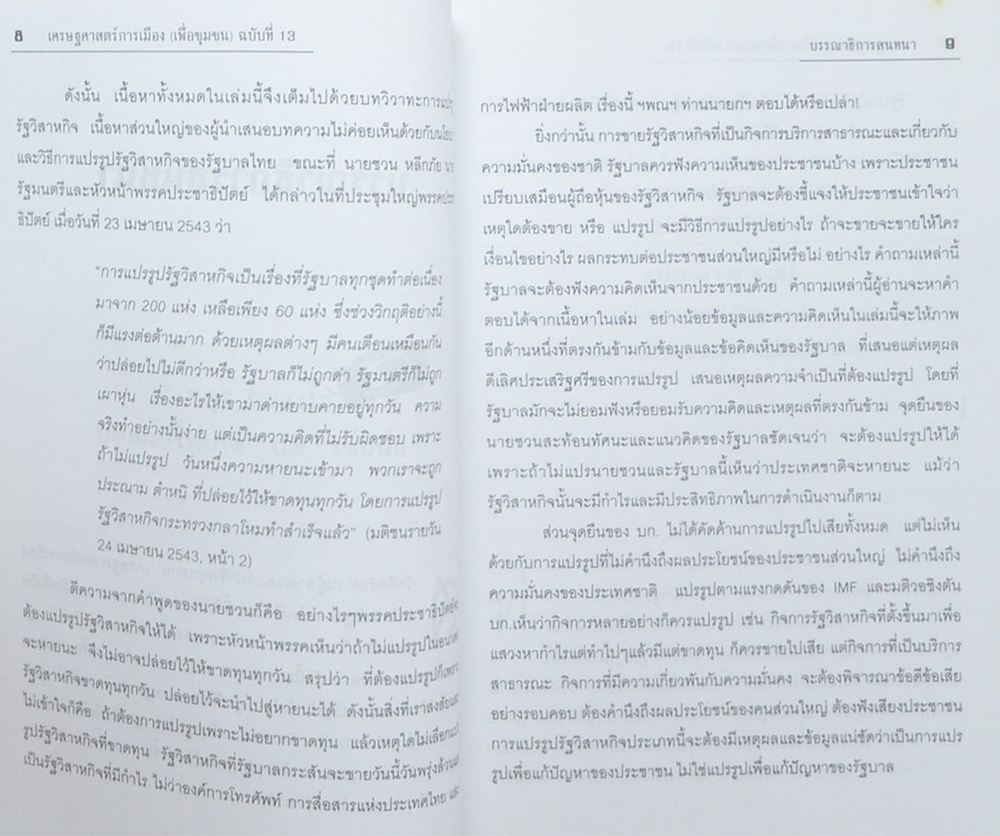 8 เศรษฐศาสตร์การเมือง (เพื่อชุมชน) ฉบับที่ 13
ดังนั้น เนื้อหาทั้งหมดในเล่มนี้จึงเต็มไปด้วยบทวิวาทะการแปรรูป
รัฐวิสาหกิจ เนื้อหาส่วนใหญ่ของผู้นำเสนอบทความไม่ค่อยเห็นด้วยกับนโยบาย
และวิธีการแปรรูปรัฐวิสาหกิจของรัฐบาลไทย ขณะที่ นายชวน หลีกภัย นา
รัฐมนตรีและหัวหน้าพรรคประชาธิปัตย์ ได้กล่าวในที่ประชุมใหญ่พรรคประชา
ธิปัตย์ เมื่อวันที่ 23 เมษายน 2543 ว่า
"การแปรรูปรัฐวิสาหกิจเป็นเรื่องที่รัฐบาลทุกชุดทำต่อเนื่อง
มาจาก 200 แห่ง เหลือเพียง 60 แห่ง ซึ่งช่วงวิกฤติอย่างนี้
ก็มีแรงต่อต้านมาก ด้วยเหตุผลต่างๆ มีคนเตือนเหมือนกัน
ว่าปล่อยไปไม่ดีกว่าหรือ รัฐบาลก็ไม่ถูกด่า รัฐมนตรีก็ไม่ถูก
เผาหุ่น เรื่องอะไรให้เขามาด่าหยาบคายอยู่ทุกวัน ความ
จริงทำอย่างนั้นง่าย แต่เป็นความคิดที่ไม่รับผิดชอบ เพราะ
ถ้าไม่แปรรูป วันหนึ่งความหายนะเข้ามา พวกเราจะถูก
ประณาม ตำหนิ ที่ปล่อยไว้ให้ขาดทุนทุกวัน โดยการแปรรูป
รัฐวิสาหกิจกระทรวงกลาโหมทำสำเร็จแล้ว" (มติชนรายวัน
24 เมษายน 2543, หน้า 2)
ตีความจากคำพูดของนายชวนก็คือ อย่างไรๆพรรคประชาธิปัตย์จะ
ต้องแปรรูปรัฐวิสาหกิจให้ได้ เพราะหัวหน้าพรรคเห็นว่าถ้าไม่แปรรูปในอนาคต
จะหายนะ จึงไม่อาจปล่อยไว้ให้ขาดทุนทุกวัน สรุปว่า ที่ต้องแปรรูปก็เพราะ
รัฐวิสาหกิจขาดทุนทุกวัน ปล่อยไว้จะนำไปสู่หายนะได้ ดังนั้นสิ่งที่เราสงสัยและ
ไม่เข้าใจก็คือ ถ้าต้องการแปรรูปเพราะไม่อยากขาดทุน แล้วเหตุใดไม่เลือกแปร
รูปรัฐวิสาหกิจที่ขาดทุน รัฐวิสาหกิจที่รัฐบาลกระสันจะขายวันนี้วันพรุ่งล้วนแต่
เป็นรัฐวิสาหกิจที่มีกำไร ไม่ว่าองค์การโทรศัพท์ การสื่อสารแห่งประเทศไทย และ
บรรณาธิการสนทนา 9
การไฟฟ้าฝ่ายผลิต เรื่องนี้ ฯพณฯ ท่านนายกฯ ตอบได้หรือเปล่า!
ยิ่งกว่านั้น การขายรัฐวิสาหกิจที่เป็นกิจการบริการสาธารณะและเกี่ยวกับ
ความมั่นคงของชาติ รัฐบาลควรฟังความเห็นของประชาชนบ้าง เพราะประชาชน
เปรียบเสมือนผู้ถือหุ้นของรัฐวิสาหกิจ รัฐบาลจะต้องชี้แจงให้ประชาชนเข้าใจว่า
เหตุใดต้องขาย หรือ แปรรูป จะมีวิธีการแปรรูปอย่างไร ถ้าจะขายจะขายให้ใคร
เงื่อนไขอย่างไร ผลกระทบต่อประชาชนส่วนใหญ่มีหรือไม่ อย่างไร คำถามเหล่านี้
รัฐบาลจะต้องฟังความคิดเห็นจากประชาชนด้วย คำถามเหล่านี้ผู้อ่านจะหาคำ
ตอบได้จากเนื้อหาในเล่ม อย่างน้อยข้อมูลและความคิดเห็นในเล่มนี้จะให้ภาพ
อีกด้านหนึ่งที่ตรงกันข้ามกับข้อมูลและข้อคิดเห็นของรัฐบาล ที่เสนอแต่เหตุผล
ดีเลิศประเสริฐศรีของการแปรรูป เสนอเหตุผลความจำเป็นที่ต้องแปรรูป โดยที่
รัฐบาลมักจะไม่ยอมฟังหรือยอมรับความคิดและเหตุผลที่ตรงกันข้าม จุดยืนของ
นายชวนสะท้อนทัศนะและแนวคิดของรัฐบาลชัดเจนว่า จะต้องแปรรูปให้ได้
เพราะถ้าไม่แปรนายชวนและรัฐบาลนี้เห็นว่าประเทศชาติจะหายนะ แม้ว่า
รัฐวิสาหกิจนั้นจะมีกำไรและมีประสิทธิภาพในการดำเนินงานก็ตาม
ส่วนจุดยืนของ บก. ไม่ได้คัดค้านการแปรรูปไปเสียทั้งหมด แต่ไม่เห็น
ด้วยกับการแปรรูปที่ไม่คำนึงถึงผลประโยชน์ของประชาชนส่วนใหญ่ ไม่คำนึงถึง
ความมั่นคงของประเทศชาติ แปรรูปตามแรงกดดันของ IMF และมติวอชิงตัน
บก.เห็นว่ากิจการหลายอย่างก็ควรแปรรูป เช่น กิจการรัฐวิสาหกิจที่ตั้งขึ้นมาเพื่อ
แสวงหากำไรแต่ทำไปๆแล้วมีแต่ขาดทุน ก็ควรขายไปเสีย แต่กิจการที่เป็นบริการ
สาธารณะ กิจการที่มีความเกี่ยวพันกับความมั่นคง จะต้องพิจารณาข้อดีข้อเสีย
อย่างรอบคอบ ต้องคำนึงถึงผลประโยชน์ของคนส่วนใหญ่ ต้องฟังเสียงประชาชน
การแปรรูปรัฐวิสาหกิจประเภทนี้จะต้องมีเหตุผลและข้อมูลแน่ชัดว่าเป็นการแปร
รูปเพื่อแก้ปัญหาของประชาชน ไม่ใช่แปรรูปเพื่อแก้ปัญหาของรัฐบาล